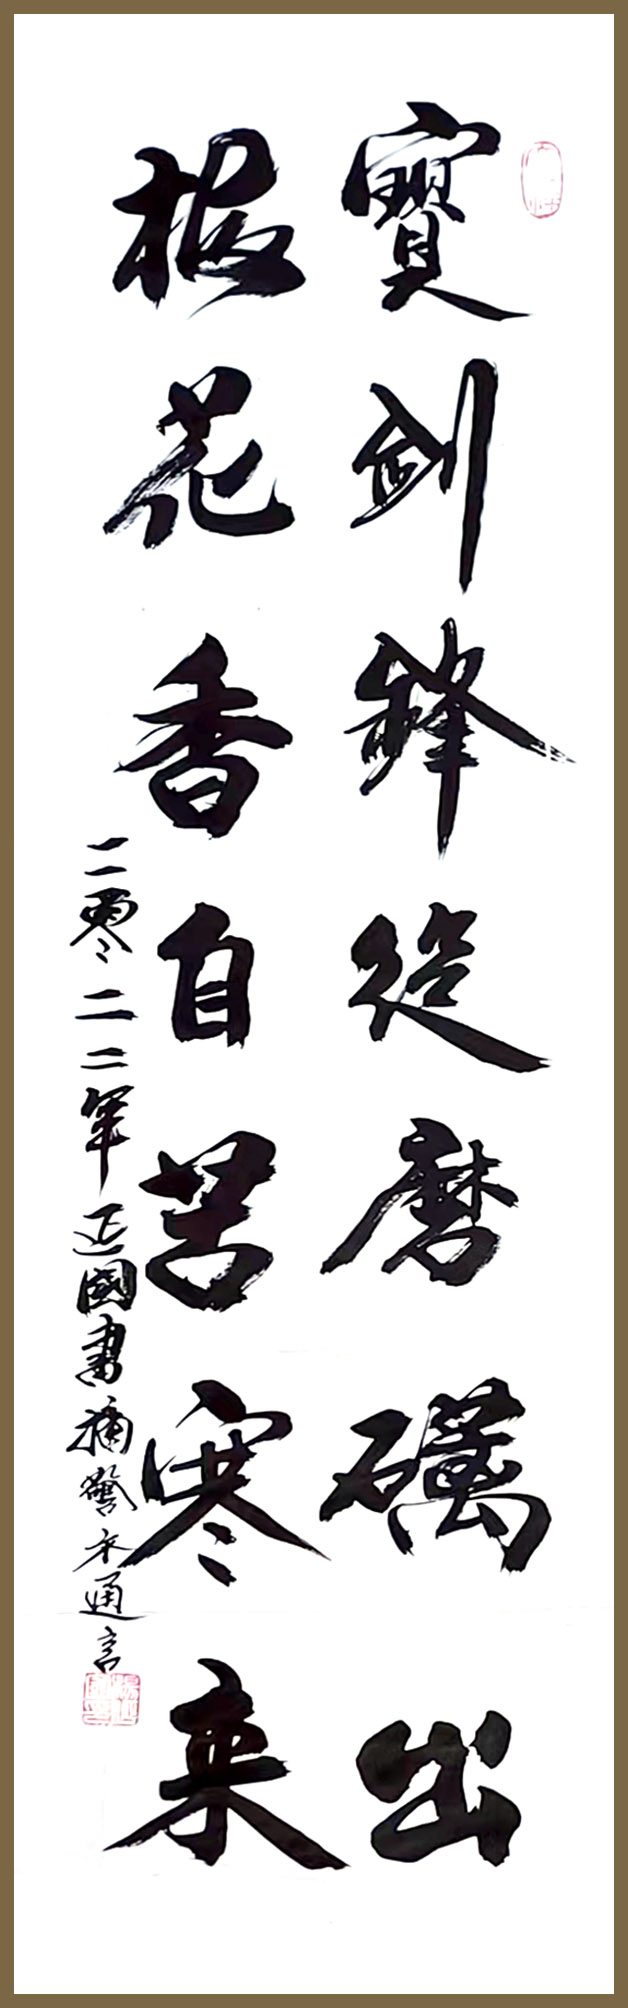 寶劍鋒從磨礪出
梅花香自苦寒来
二零二二年延國書摘警世通言